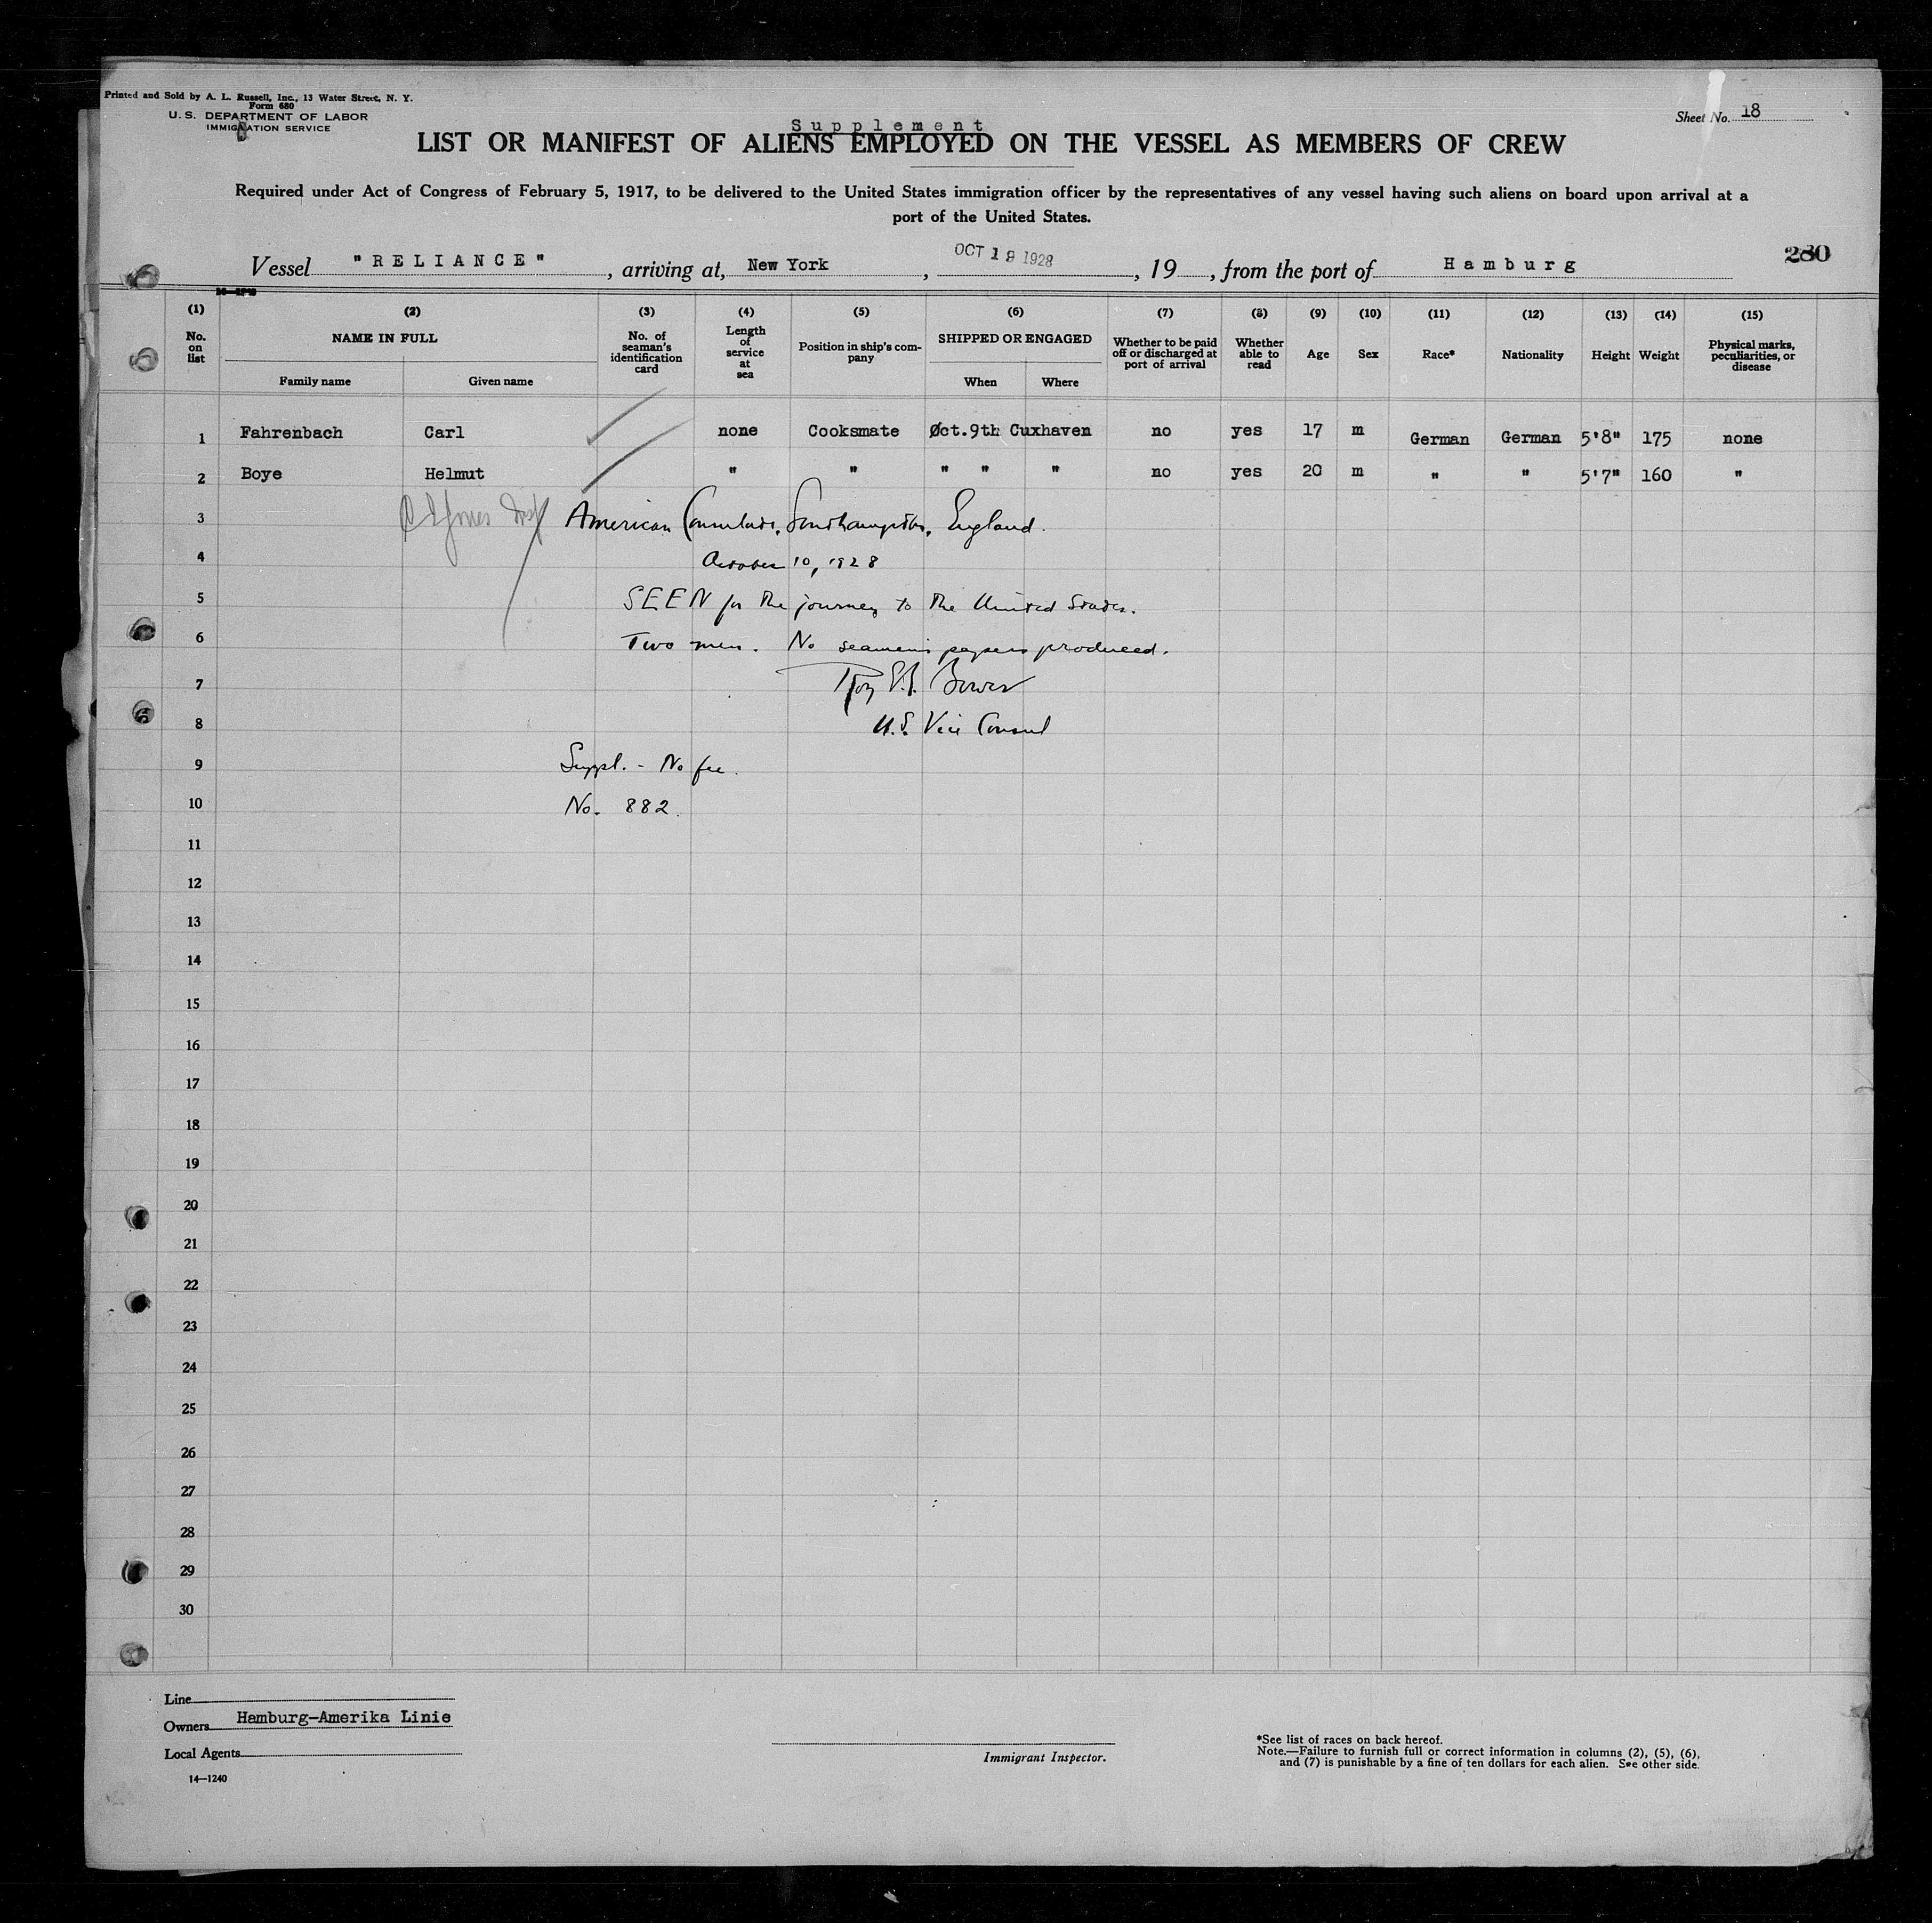 Printed and Sold by A. L. Russell, Inc., 13 Water Street, N. Y.
Form 680
U. S. DEPARTMENT OF LABOR
IMMIGRATION SERVICE
Sheet No. 18
Supplement
LIST OR MANIFEST OF ALIENS EMPLOYED ON THE VESSEL AS MEMBERS OF CREW
Required under Act of Congress of February 5, 1917, to be delivered to the United States immigration officer by the representatives of any vessel having such aliens on board upon arrival at a
port of the United States.
Vessel "RELIANCE", arriving at, New York, OCT 19 1928, 19, from the port of Hamburg
280
(1) (2) (3) (4) (5) (6) (7) (8) (9) (10) (11) (12) (13) (14) (15)
No. on list NAME IN FULL No. of seaman's identification card Length of service at sea Position in ship's company SHIPPED OR ENGAGED Whether to be paid off or discharged at port of arrival Whether able to read Age Sex Race* Nationality Height Weight Physical marks, peculiarities, or disease
Family name Given name When Where
1 Fahrenbach Carl none Cooksmate Oct.9th Cuxhaven no yes 17 m German German 5'8" 175 none
2 Boye Helmut " " " " " no yes 20 m " " 5'7" 160 "
3 American Consulate, Southampton, England.
4 October 10, 1928
5 SEEN for the journey to the United States.
6 Two men. No seamen's papers produced.
7 Roy E.B. Bower
8 U.S. Vice Consul
9 Suppl. - No fee.
10 No. 882.
11
12
13
14
15
16
17
18
19
20
21
22
23
24
25
26
27
28
29
30
Line
Owners Hamburg-Amerika Linie
Local Agents
14—1240
Immigrant Inspector.
*See list of races on back hereof.
Note.—Failure to furnish full or correct information in columns (2), (5), (6),
and (7) is punishable by a fine of ten dollars for each alien. See other side.